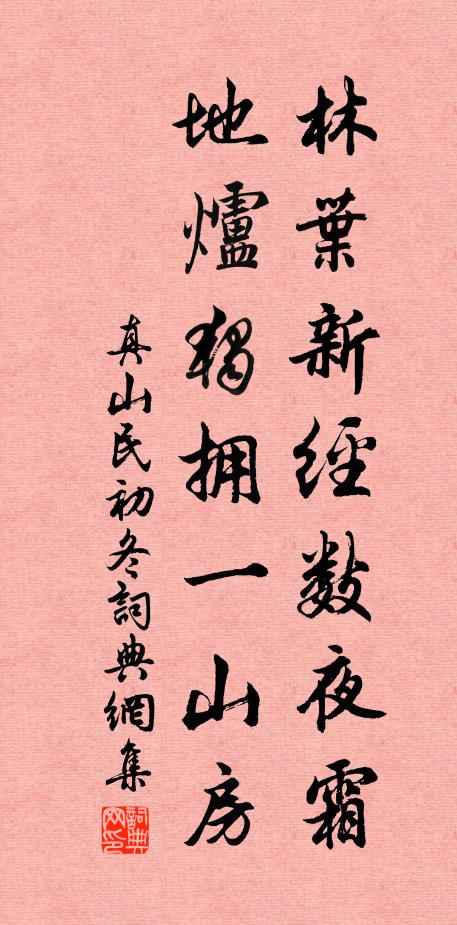 林葉新經數夜霜
地爐獨拥一山房
真山民初冬詞典網集
詞典网印